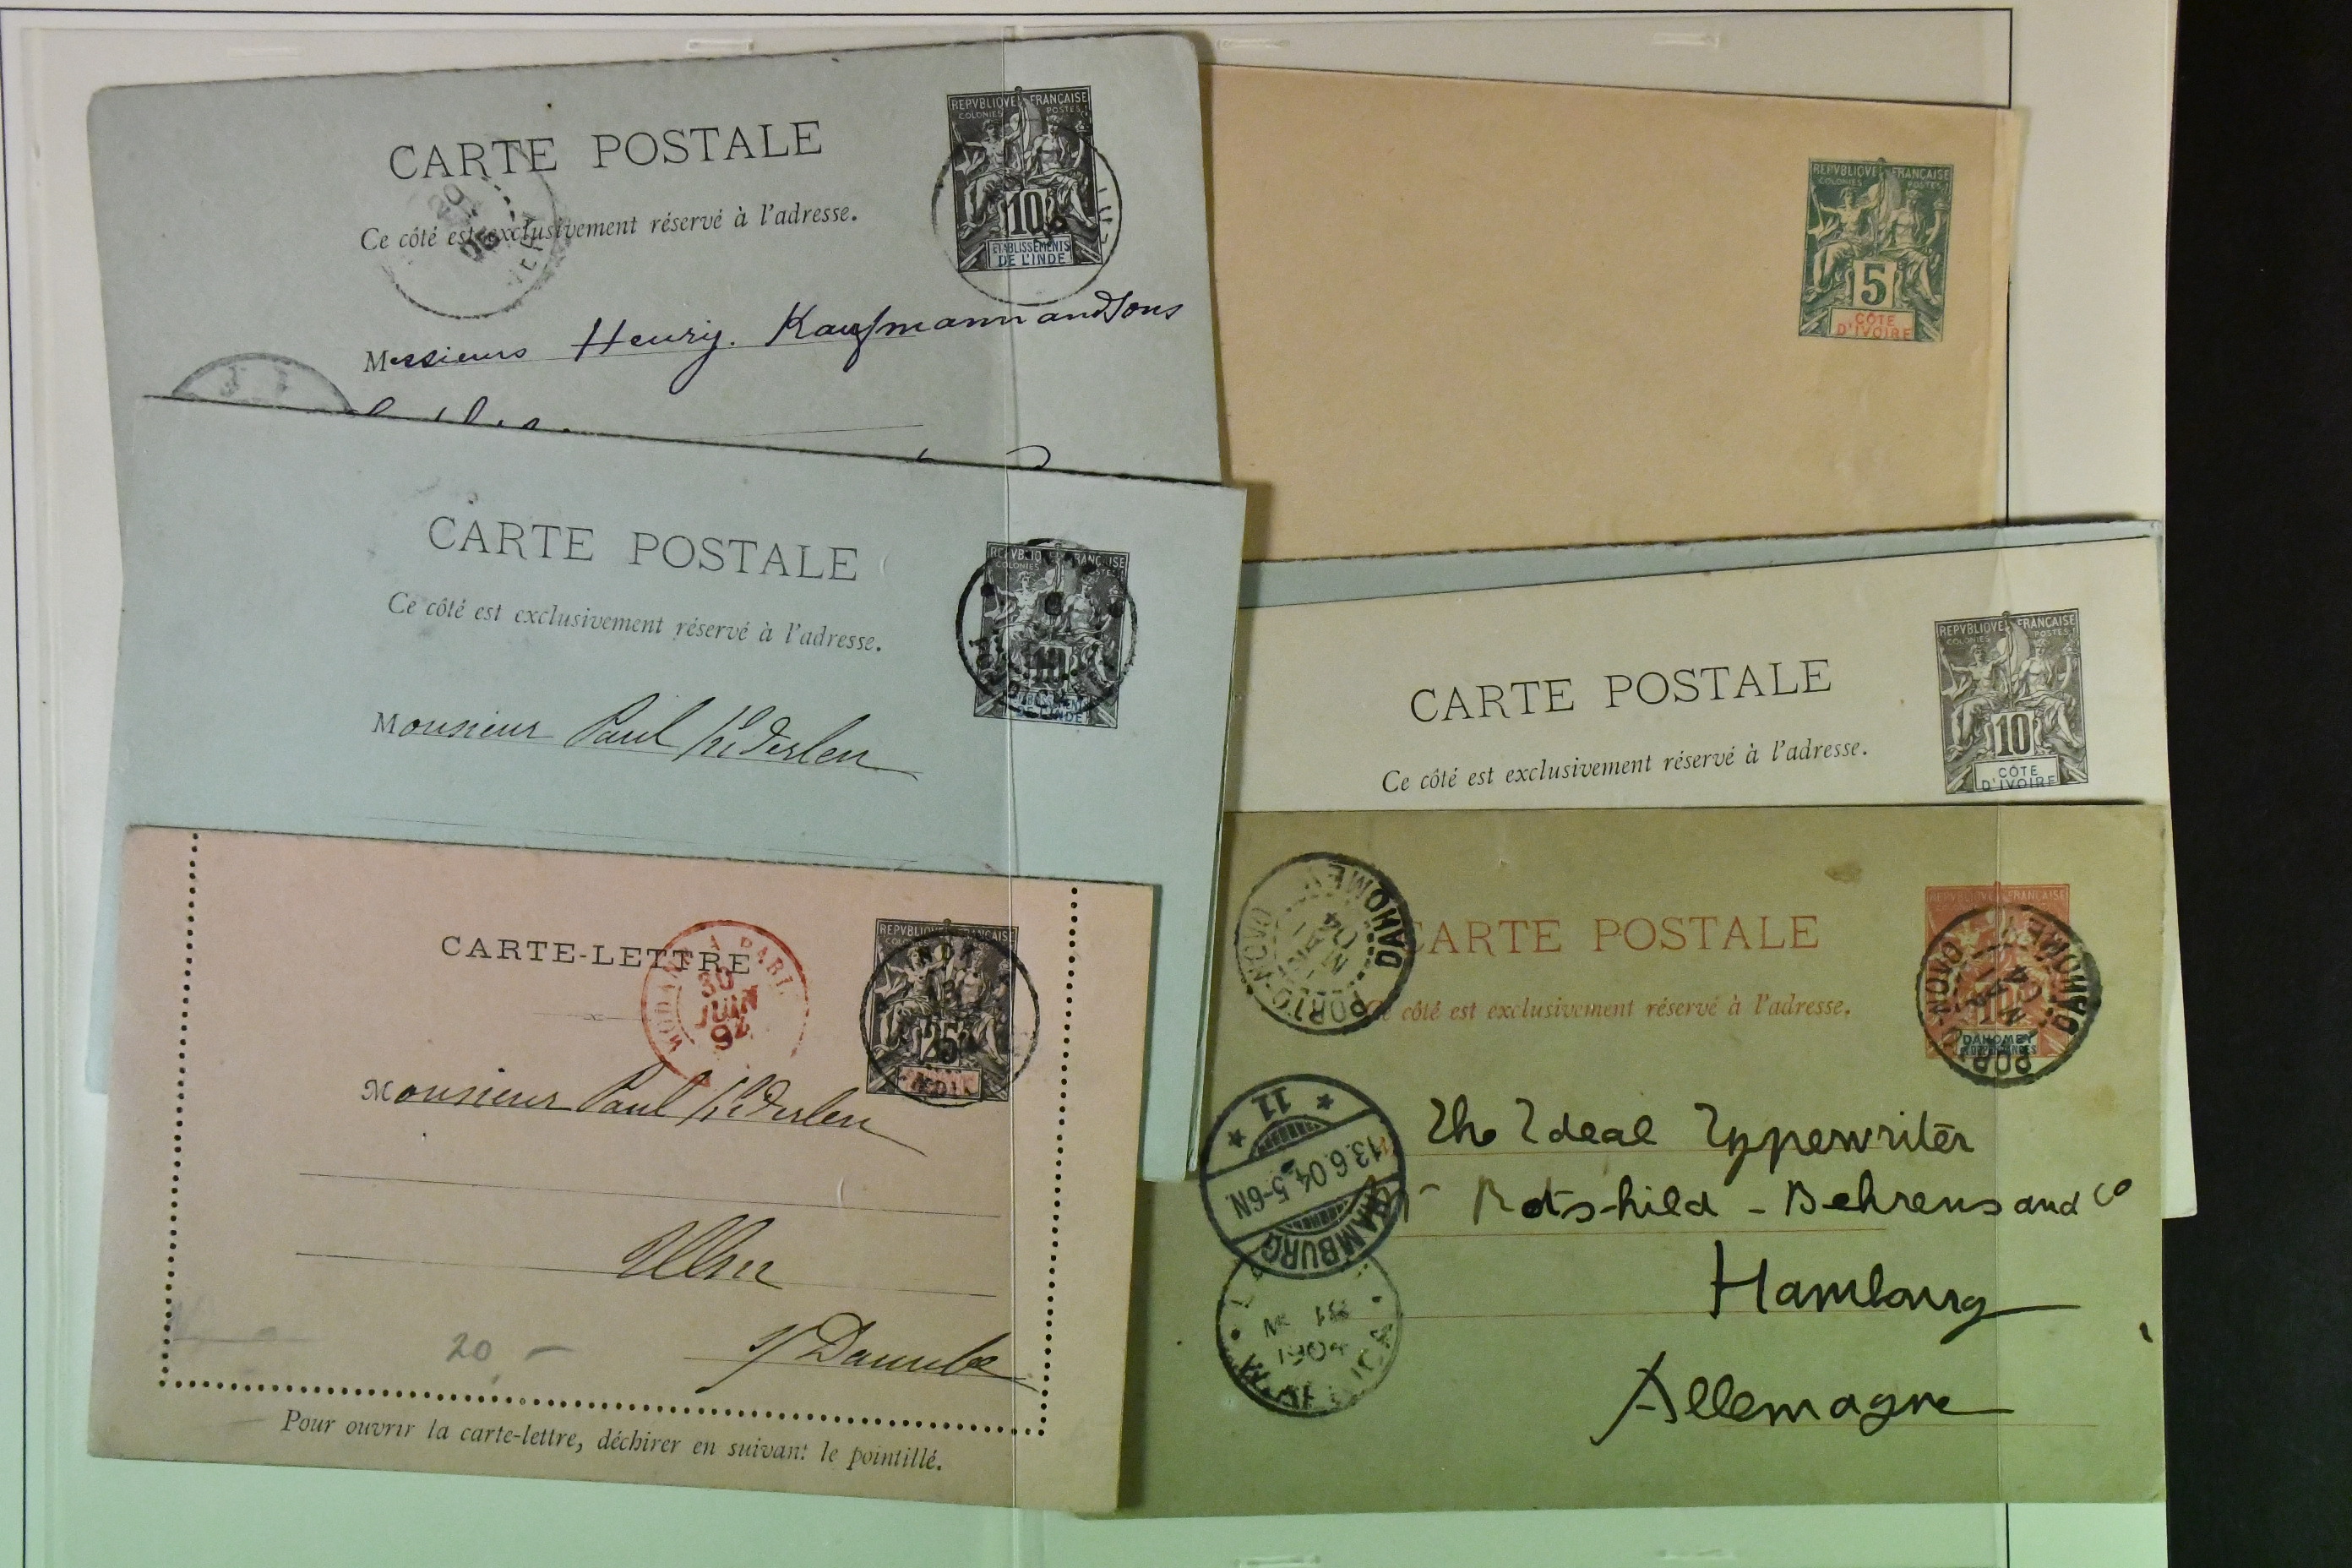 CARTE POSTALE
Ce côté est exclusivement réservé à l'adresse.
REPVBLIQVE FRANÇAISE
COLONIES POSTES
10
ETABLISSEMENTS
DE L'INDE
20
Messieurs Henry. Kaufmann and Sons
REPVBLIQVE FRANÇAISE
COLONIES POSTES
5
CÔTE
D'IVOIRE
CARTE POSTALE
Ce côté est exclusivement réservé à l'adresse.
COLONIES POSTES
10
DE L'INDE
Monsieur Paul
CARTE POSTALE
Ce côté est exclusivement réservé à l'adresse.
REPVBLIQVE FRANÇAISE
COLONIES POSTES
10
CÔTE
D'IVOIRE
CARTE-LETTRE
REPVBLIQVE FRANÇAISE
MODANE A PARIS
30
JUIN
Monsieur Paul
Ulm
s/ Danube
20 -
Pour ouvrir la carte-lettre, déchirer en suivant le pointillé.
CARTE POSTALE
Ce côté est exclusivement réservé à l'adresse.
REPVBLIQVE FRANÇAISE
10
DAHOMEY
PORTO-NOVO
DAHOMEY
MAI
04
PORTO-NOVO
DAHOMEY
The Ideal Typewriter
Rotschild - Behrens and Co
Hambourg
Allemagne
HAMBURG
13.6.04.5-6N.
* 11 *
1904